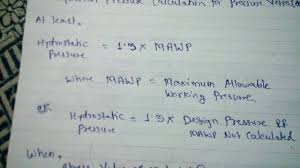 Pressure Calculation for Pressure Vessels
At least.
Hydrostatic = 1.3 x MAWP
Pressure
Where MAWP = Maximum Allowable
Working Pressure.
OR
Hydrostatic = 1.3 x Design Pressure If
Pressure MAWP Not Calculated
When,